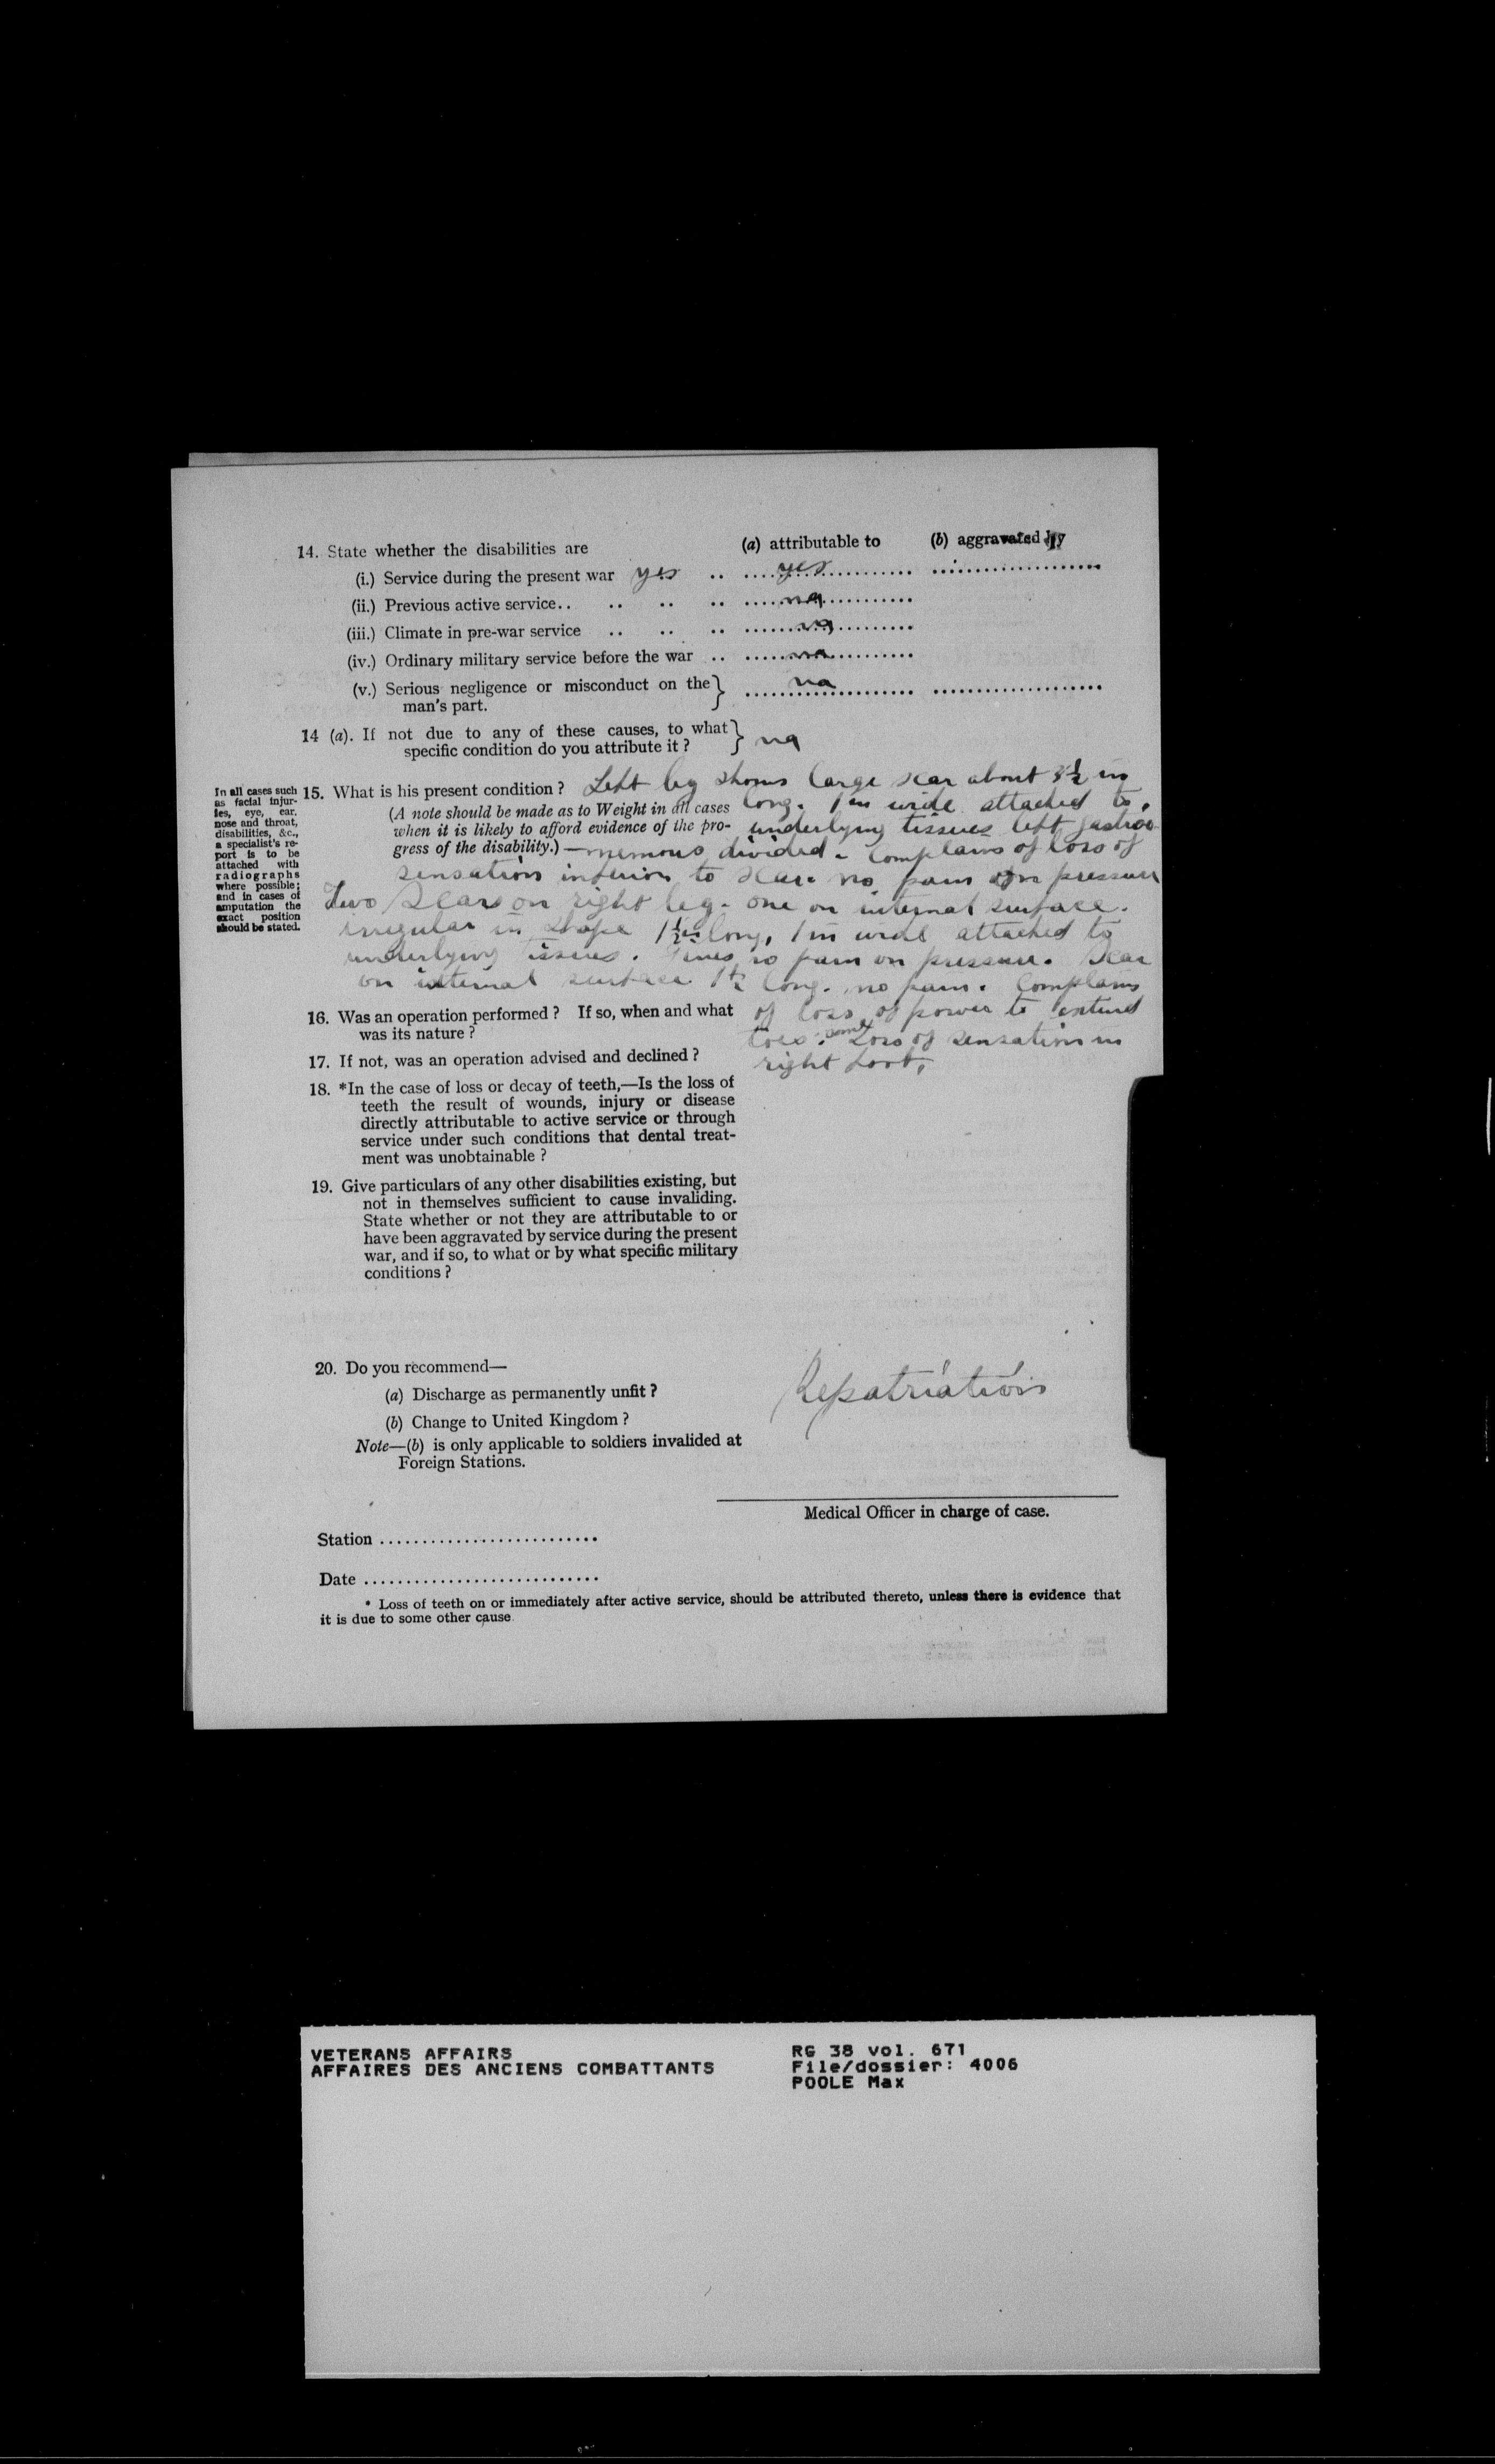 14. State whether the disabilities are (a) attributable to (b) aggravated by
(i.) Service during the present war yes .. yes
(ii.) Previous active service.. .. .. .. na
(iii.) Climate in pre-war service .. .. .. na
(iv.) Ordinary military service before the war .. na
(v.) Serious negligence or misconduct on the } na
man's part.
14 (a). If not due to any of these causes, to what } na
specific condition do you attribute it ?
In all cases such
as facial injur-
ies, eye, ear.
nose and throat,
disabilities, &c.,
a specialist's re-
port is to be
attached with
radiographs
where possible;
and in cases of
amputation the
exact position
should be stated.
15. What is his present condition ? Left leg shows large scar about 3½ in
(A note should be made as to Weight in all cases long. 1 in wide attached to,
when it is likely to afford evidence of the pro- underlying tissues left gastroc
gress of the disability.) — nemious divided. Complains of loss of
sensation inferior to scar. no pain on pressure
Two Scars on right leg. one on internal surface.
irregular in shape 1½ in long, 1 in wide attached to
underlying tissues. Gives no pain on pressure. Scar
on internal surface 1½ long. no pain. Complains
of loss of power to extend
toes. some Loss of sensation in
right foot.
16. Was an operation performed ? If so, when and what
was its nature ?
17. If not, was an operation advised and declined ?
18. *In the case of loss or decay of teeth,—Is the loss of
teeth the result of wounds, injury or disease
directly attributable to active service or through
service under such conditions that dental treat-
ment was unobtainable ?
19. Give particulars of any other disabilities existing, but
not in themselves sufficient to cause invaliding.
State whether or not they are attributable to or
have been aggravated by service during the present
war, and if so, to what or by what specific military
conditions ?
20. Do you recommend—
(a) Discharge as permanently unfit ? Repatriation
(b) Change to United Kingdom ?
Note—(b) is only applicable to soldiers invalided at
Foreign Stations.
Medical Officer in charge of case.
Station ..........................
Date ............................
* Loss of teeth on or immediately after active service, should be attributed thereto, unless there is evidence that
it is due to some other cause.
VETERANS AFFAIRS RG 38 vol. 671
AFFAIRES DES ANCIENS COMBATTANTS File/dossier: 4006
POOLE Max